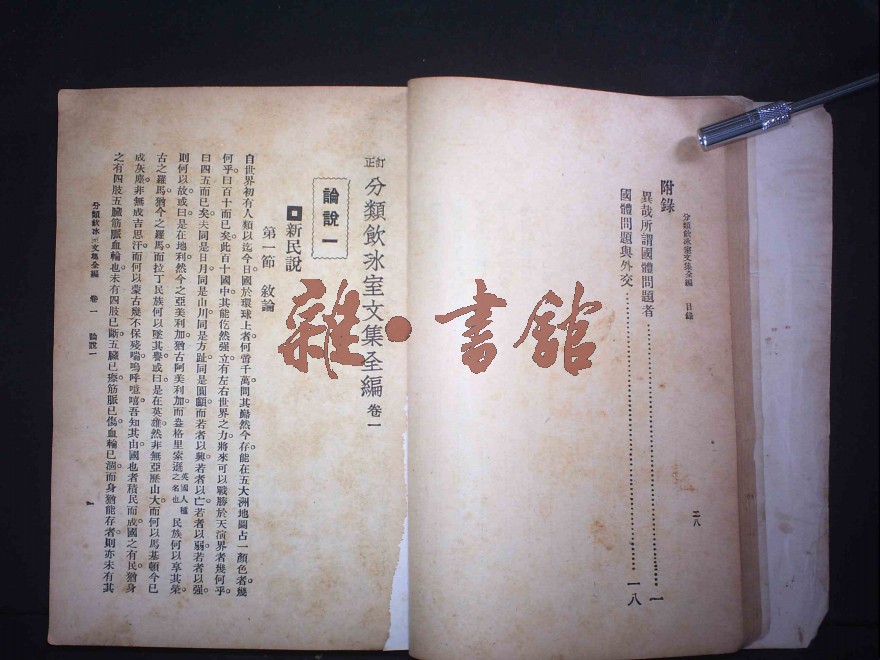 分類飲冰室文集全編　目錄
附錄
異哉所謂國體問題者……一
國體問題與外交……一八
二八
訂正分類飲冰室文集全編卷一
論說一
新民說
第一節　敘論
自世界初有人類以迄今日國於環球上者何啻千萬問其巋然今存能在五大洲地圖占一顏色者幾
何乎曰百十而已矣此百十國中其能屹然強立有左右世界之力將來可以戰勝於天演界者幾何乎
曰四五而已矣夫同是日月同是山川同是方趾同是圓顱而若者以興若者以亡若者以弱若者以強
則何以故或曰是在地利然今之亞美利加猶古阿美利加而盎格里索遜英國人種之名也民族何以享其榮
古之羅馬猶今之羅馬而拉丁民族何以墜其譽或曰是在英雄然非無亞歷山大而何以馬基頓今已
成灰塵非無成吉思汗而何以蒙古幾不保殘喘嗚呼噫嘻吾知其由國也者積民而成國之有民猶身
之有四肢五臟筋脈血輪也未有四肢已斷五臟已瘵筋脈已傷血輪已涸而身猶能存者則亦未有其
分類飲冰室文集全編　卷一　論說一
一
雜·書館